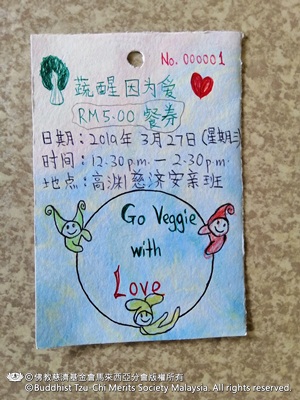 No. 000001
蔬醒因为爱
RM5.00 餐券
日期：2019年3月27日(星期三)
时间：12.30p.m. — 2.30p.m.
地点：高渊慈济安亲班
Go Veggie
with
Love
©佛教慈濟基金會馬來西亞分會版權所有
©Buddhist Tzu-Chi Merits Society Malaysia. All rights reserved.